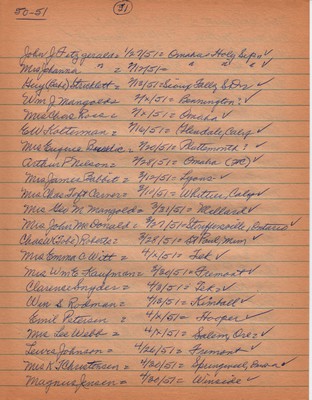 50-51
31
John J. Fitzgerald = 1/27/51 = Omaha = Holy Sep. ✓
Mrs Johanna " = 2/12/51 = " " " ✓
Guy (Cabe) Stricklett = 2/10/51 = Sioux Falls S.D. ✓
Wm. J. Mangold = 2/2/51 = Bennington ✓
Mrs Chas Ross = 2/2/51 = Omaha ✓
E.W. Kotterman = 2/16/51 = Glendale, Calif ✓
Mrs Eugene = 2/20/51 = Plattsmouth ✓
Arthur P. Nelson = 2/28/51 = Omaha ✓
Mrs James Talbit = 2/10/51 = Lyons ✓
Mrs Chas Toft Carver = 2/11/51 = Whittier, Calif ✓
Mrs Geo M. Mangold = 3/21/51 = Millard ✓
Mrs John McDonald = 3/27/51 = Ontario ✓
Chas W. Roberts = 3/28/51 = St Paul, Minn ✓
Mrs Emma O. Witt = 4/2/51 = Tek ✓
Mrs Wm E. Kaufman = 3/30/51 = Fremont ✓
Clarence Snyder = 4/3/51 = Tek ✓
Wm. S. R. = 4/10/51 = Kimball ✓
Emil Petersen = 4/2/51 = Hooper ✓
Mrs Lee Webb = 4/2/51 = Salem, Ore ✓
Lewis Johnson = 4/26/51 = Fremont ✓
Mrs K. T. Christensen = 4/30/51 = ✓
Magnus Jensen = 4/30/51 = Winside ✓